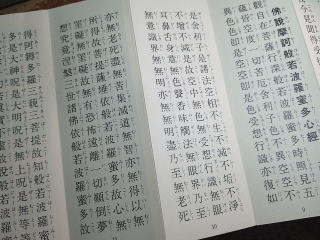 佛說摩訶般若波羅蜜多心經
觀自在菩薩行深般若波羅蜜多時照見五
蘊皆空度一切苦厄舍利子色不異空空不
異色色即是空空即是色受想行識亦復如
9
是舍利子是諸法空相不生不滅不垢不淨
不增不減是故空中無色無受想行識無眼
耳鼻舌身意無色聲香味觸法無眼界乃至
無意識界無無明亦無無明盡乃至無老死
10
亦無老死盡無苦集滅道無智亦無得以無
所得故菩提薩埵依般若波羅蜜多故心無
罣礙無罣礙故無有恐怖遠離一切顛倒夢
想究竟涅槃三世諸佛依般若波羅蜜多故
得阿耨多羅三藐三菩提故知般若波羅蜜
多是大神咒是大明咒是無上咒是無等等